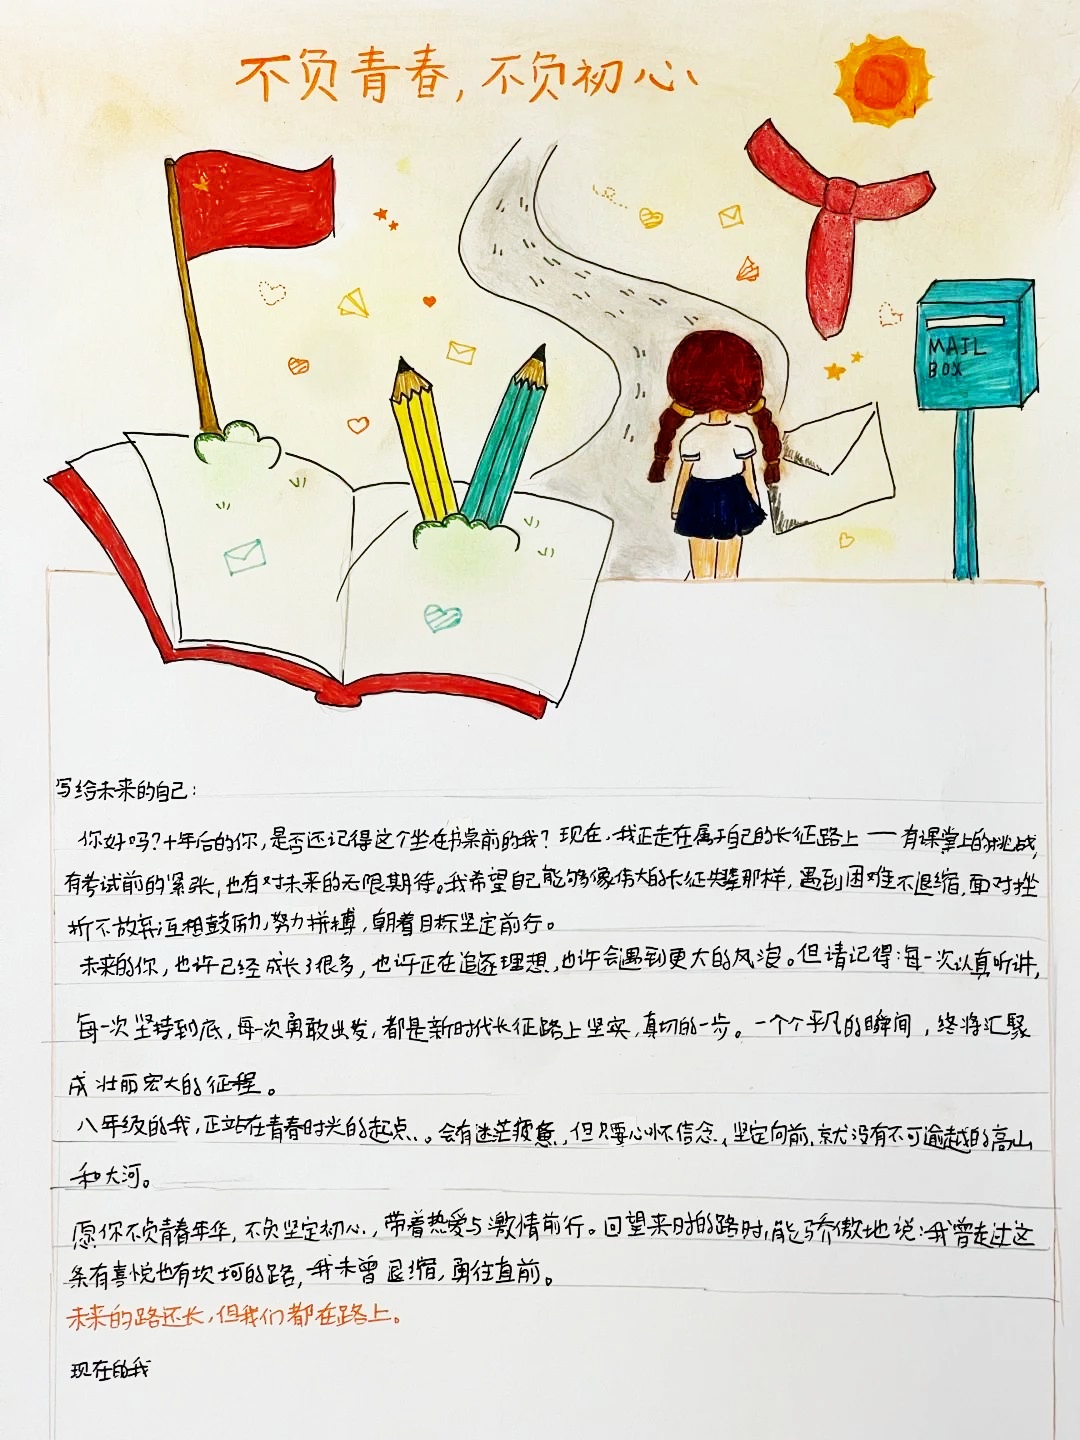 不负青春，不负初心
MAIL
BOX
写给未来的自己：
你好吗？十年后的你，是否还记得这个坐在书桌前的我？现在，我正走在属于自己的长征路上——有课堂上的挑战，
有考试前的紧张，也有对未来的无限期待。我希望自己能够像伟大的长征先辈那样，遇到困难不退缩，面对挫
折不放弃互相鼓励，努力拼搏，朝着目标坚定前行。
未来的你，也许已经成长了很多，也许正在追逐理想，也许会遇到更大的风浪。但请记得：每一次认真听讲，
每一次坚持到底，每一次勇敢出发，都是新时代长征路上坚实，真切的一步。一个个平凡的瞬间，终将汇聚
成壮丽宏大的征程。
八年级的我，正站在青春时光的起点、。会有迷茫疲惫，但只要心怀信念，坚定向前，就没有不可逾越的高山
和大河。
愿你不负青春年华，不负坚定初心，带着热爱与激情前行。回望来时的路时，能骄傲地说：我曾走过这
条有喜悦也有坎坷的路，我未曾退缩，勇往直前。
未来的路还长，但我们都在路上。
现在的我